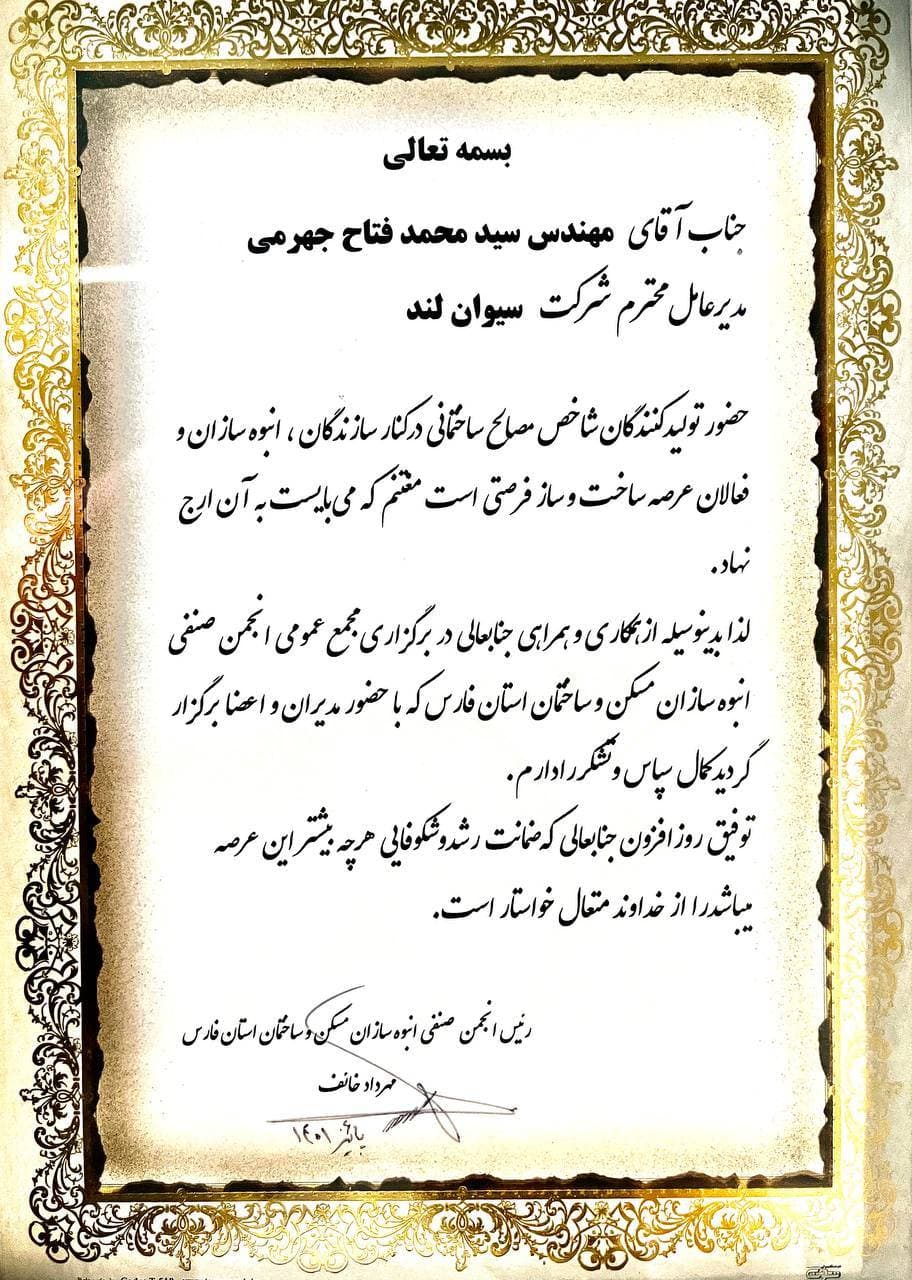 بسمه تعالی
جناب آقای مهندس سید محمد فتاح جهرمی
مدیرعامل محترم شرکت سیوان لند
حضور تولیدکنندگان شاخص مصالح ساختمانی درکنار سازندگان ، انبوه سازان و
فعالان عرصه ساخت و ساز فرصتی است مغتنم که می بایست به آن ارج
نهاد.
لذا بدینوسیله از همکاری و همراهی جنابعالی در برگزاری مجمع عمومی انجمن صنفی
انبوه سازان مسکن و ساختمان استان فارس که با حضور مدیران و اعضا برگزار
گردید کمال سپاس و تشکر را دارم.
توفیق روز افزون جنابعالی که ضمانت رشد و شکوفایی هرچه بیشتر این عرصه
میباشد را از خداوند متعال خواستار است.
رئیس انجمن صنفی انبوه سازان مسکن و ساختمان استان فارس
مهرداد خائف
پائیز ۱۴۰۱